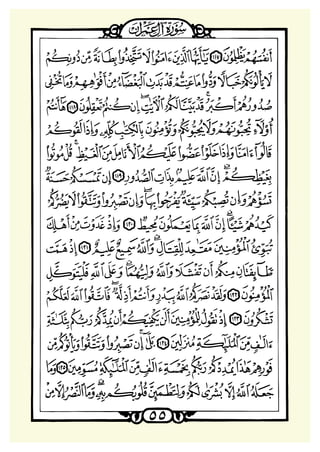 سُورَةُ آلِ عِمْرَانَ
أَنفُسَهُمْ يَظْلِمُونَ ١١٧ يَٰٓأَيُّهَا ٱلَّذِينَ ءَامَنُوا۟ لَا تَتَّخِذُوا۟ بِطَانَةً مِّن دُونِكُمْ
لَا يَأْلُونَكُمْ خَبَالًا وَدُّوا۟ مَا عَنِتُّمْ قَدْ بَدَتِ ٱلْبَغْضَآءُ مِنْ أَفْوَٰهِهِمْ وَمَا تُخْفِى
صُدُورُهُمْ أَكْبَرُ ۚ قَدْ بَيَّنَّا لَكُمُ ٱلْءَايَٰتِ ۖ إِن كُنتُمْ تَعْقِلُونَ ١١٨ هَٰٓأَنتُمْ
أُو۟لَآءِ تُحِبُّونَهُمْ وَلَا يُحِبُّونَكُمْ وَتُؤْمِنُونَ بِٱلْكِتَٰبِ كُلِّهِۦ وَإِذَا لَقُوكُمْ
قَالُوٓا۟ ءَامَنَّا وَإِذَا خَلَوْا۟ عَضُّوا۟ عَلَيْكُمُ ٱلْأَنَامِلَ مِنَ ٱلْغَيْظِ ۚ قُلْ مُوتُوا۟
بِغَيْظِكُمْ ۗ إِنَّ ٱللَّهَ عَلِيمٌۢ بِذَاتِ ٱلصُّدُورِ ١١٩ إِن تَمْسَسْكُمْ حَسَنَةٌ
تَسُؤْهُمْ وَإِن تُصِبْكُمْ سَيِّئَةٌ يَفْرَحُوا۟ بِهَا ۖ وَإِن تَصْبِرُوا۟ وَتَتَّقُوا۟ لَا يَضُرُّكُمْ
كَيْدُهُمْ شَيْـًٔا ۗ إِنَّ ٱللَّهَ بِمَا يَعْمَلُونَ مُحِيطٌ ١٢٠ وَإِذْ غَدَوْتَ مِنْ أَهْلِكَ
تُبَوِّئُ ٱلْمُؤْمِنِينَ مَقَٰعِدَ لِلْقِتَالِ ۗ وَٱللَّهُ سَمِيعٌ عَلِيمٌ ١٢١ إِذْ هَمَّت
طَّآئِفَتَانِ مِنكُمْ أَن تَفْشَلَا وَٱللَّهُ وَلِيُّهُمَا ۗ وَعَلَى ٱللَّهِ فَلْيَتَوَكَّلِ
ٱلْمُؤْمِنُونَ ١٢٢ وَلَقَدْ نَصَرَكُمُ ٱللَّهُ بِبَدْرٍ وَأَنتُمْ أَذِلَّةٌ ۖ فَٱتَّقُوا۟ ٱللَّهَ لَعَلَّكُمْ
تَشْكُرُونَ ١٢٣ إِذْ تَقُولُ لِلْمُؤْمِنِينَ أَلَن يَكْفِيَكُمْ أَن يُمِدَّكُمْ رَبُّكُم بِثَلَٰثَةِ
ءَالَٰفٍ مِّنَ ٱلْمَلَٰٓئِكَةِ مُنزَلِينَ ١٢٤ بَلَىٰٓ ۚ إِن تَصْبِرُوا۟ وَتَتَّقُوا۟ وَيَأْتُوكُم مِّن
فَوْرِهِمْ هَٰذَا يُمْدِدْكُمْ رَبُّكُم بِخَمْسَةِ ءَالَٰفٍ مِّنَ ٱلْمَلَٰٓئِكَةِ مُسَوِّمِينَ ١٢٥ وَمَا
جَعَلَهُ ٱللَّهُ إِلَّا بُشْرَىٰ لَكُمْ وَلِتَطْمَئِنَّ قُلُوبُكُم بِهِۦ ۗ وَمَا ٱلنَّصْرُ إِلَّا مِنْ
٥٥